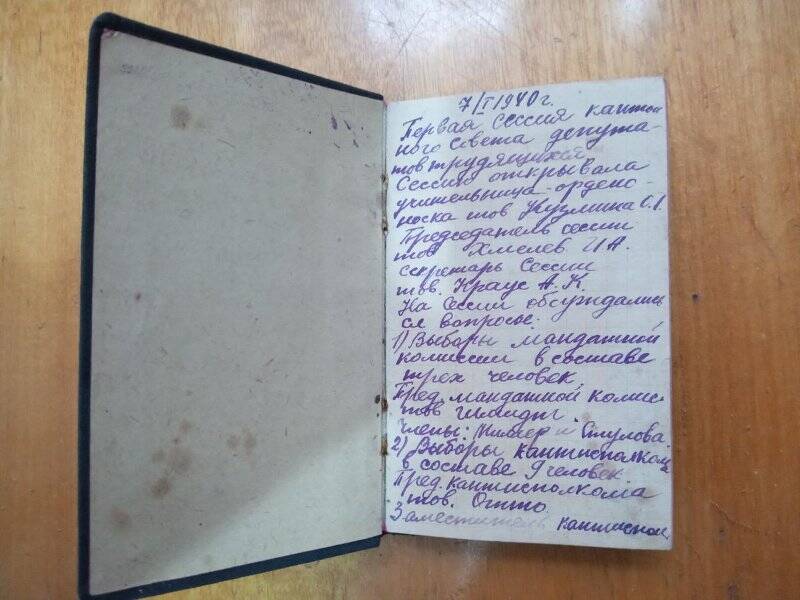 7/I 1940 г.
Первая сессия кантон
ного Совета депута-
тов трудящихся.
Сессию открывала
учительница-ордено-
носка тов Кузмина
Председатель сессии
тов Хмелев И А.
секретарь Сессии
тов. Краус А. К.
На Сессии обсуждались
сл вопросы:
1) Выборы мандатной
комиссии в составе
трех человек,
Пред. мандатной комис.
тов Шмидт.
члены: Миллер и Стулова.
2) Выборы кантисполкома
в составе 9 человек.
Пред. кантисполкома
тов. Отто
Заместитель кантиспол